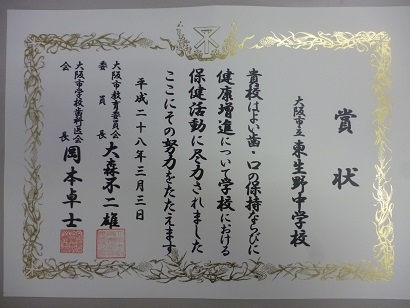 賞状
大阪市立 東生野中学校
貴校はよい歯・口の保持ならびに
健康増進について学校における
保健活動に尽力されました
ここにその努力をたたえます
平成二十八年三月三日
大阪市教育委員会
委員長 大森不二雄
大阪市学校歯科医会
会長 岡本卓士